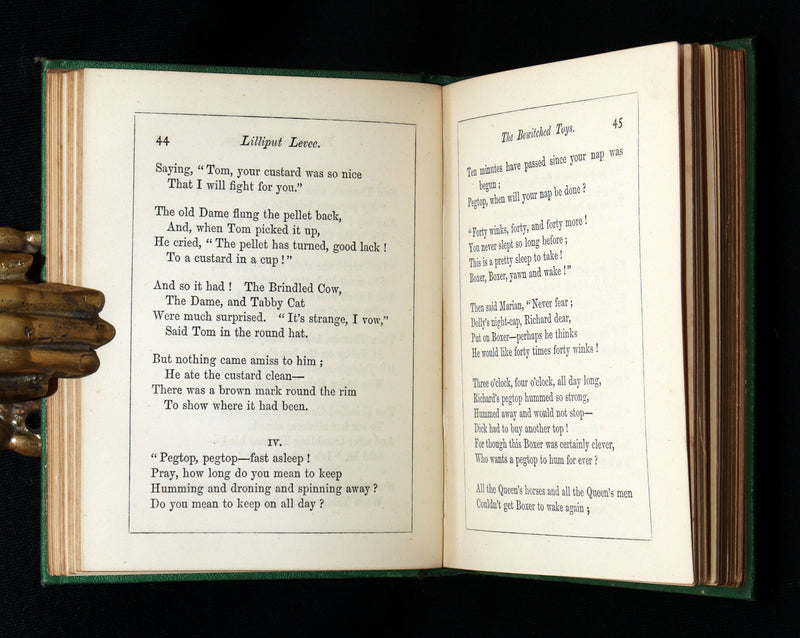 44
Lilliput Levee.
Saying, “ Tom, your custard was so nice
That I will fight for you.”
The old Dame flung the pellet back,
And, when Tom picked it up,
He cried, “ The pellet has turned, good lack !
To a custard in a cup ! ”
And so it had ! The Brindled Cow,
The Dame, and Tabby Cat
Were much surprised. “ It's strange, I vow,”
Said Tom in the round hat.
But nothing came amiss to him ;
He ate the custard clean—
There was a brown mark round the rim
To show where it had been.
IV.
“ Pegtop, pegtop—fast asleep !
Pray, how long do you mean to keep
Humming and droning and spinning away ?
Do you mean to keep on all day ?
The Bewitched Toys.
45
Ten minutes have passed since your nap was
begun ;
Pegtop, when will your nap be done ?
“Forty winks, forty, and forty more !
You never slept so long before ;
This is a pretty sleep to take !
Boxer, Boxer, yawn and wake ! ”
Then said Marian, “ Never fear ;
Dolly's night-cap, Richard dear,
Put on Boxer—perhaps he thinks
He would like forty times forty winks !
Three o'clock, four o'clock, all day long,
Richard's pegtop hummed so strong,
Hummed away and would not stop—
Dick had to buy another top !
For though this Boxer was certainly clever,
Who wants a pegtop to hum for ever ?
All the Queen's horses and all the Queen's men
Couldn't get Boxer to wake again ;